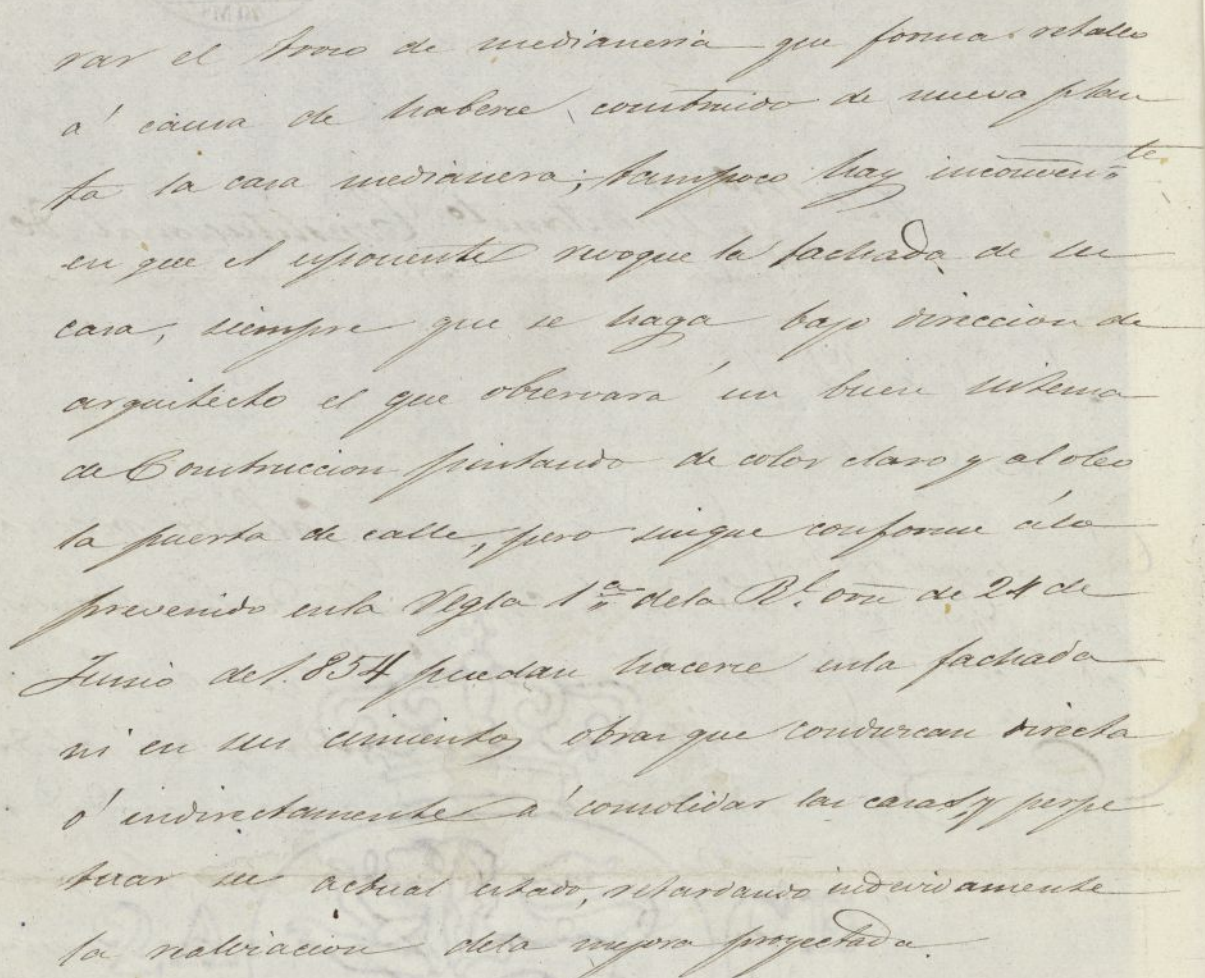 rar el trozo de medianeria que forma retallo
á causa de haberse construido de nueva plan
ta la casa medianera; tampoco hay inconven.te
en que el esponente revoque la fachada de su
casa, siempre que se haga bajo direccion de
arquitecto el que observará un buen sistema
de Construccion pintando de color claro y al oleo
la puerta de calle, pero sinque conforme álo
prevenido enla Regla 1.ª dela Rl. orn de 24 de
Junio del.854 puedan hacerse enla fachada
ni en sus cimientos obras que conduzcan directa
ó indirectamente á consolidar las casas, y perpe
tuar su actual estado, retardando indevidamente
la realizacion dela mejora proyectada.